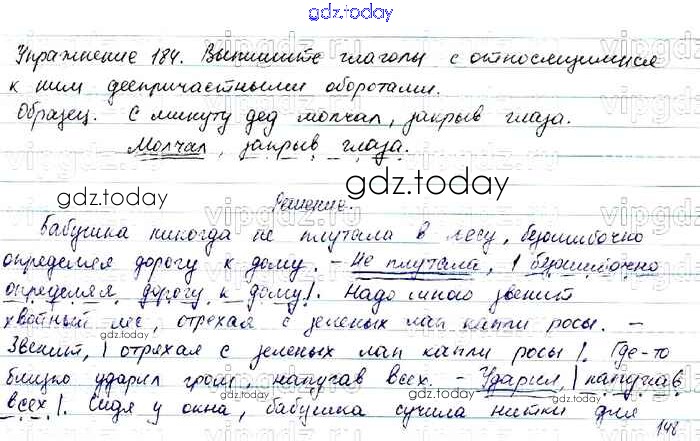 gdz.today
Упражнение 184. Выпишите глаголы с относящимися
к ним деепричастными оборотами.
Образец. С минуту дед молчал, закрыв глаза.
Молчал, закрыв глаза.
gdz.today
gdz.today
Решение.
Бабушка никогда не плутала в лесу, безошибочно
определяя дорогу к дому. - Не плутала, | безошибочно
определяя дорогу к дому|. Надо мною звенит
хвойный лес, отряхая с зеленых лап капли росы. -
Звенит, | отряхая с зеленых лап капли росы|. Где-то
близко ударил гром, напугав всех. - Ударил, | напугав
всех|. Сидя у окна, бабушка сучила нитки для
gdz.today
148